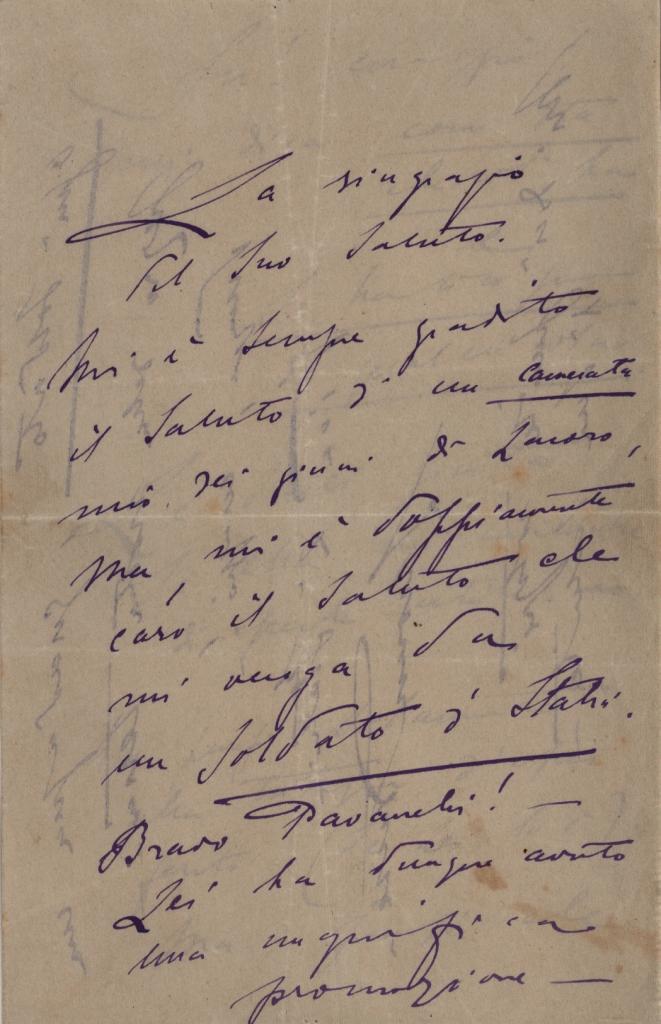 La ringrazio
del Suo Saluto.
Mi è sempre gradito
il Saluto di un camerata
mio dei giorni di Lavoro,
Ma, mi è doppiamente
caro il Saluto che
mi venga da
un Soldato d'Italia.
Bravo Pavanelli! —
Lei ha dunque avuto
una magnifica
promozione —